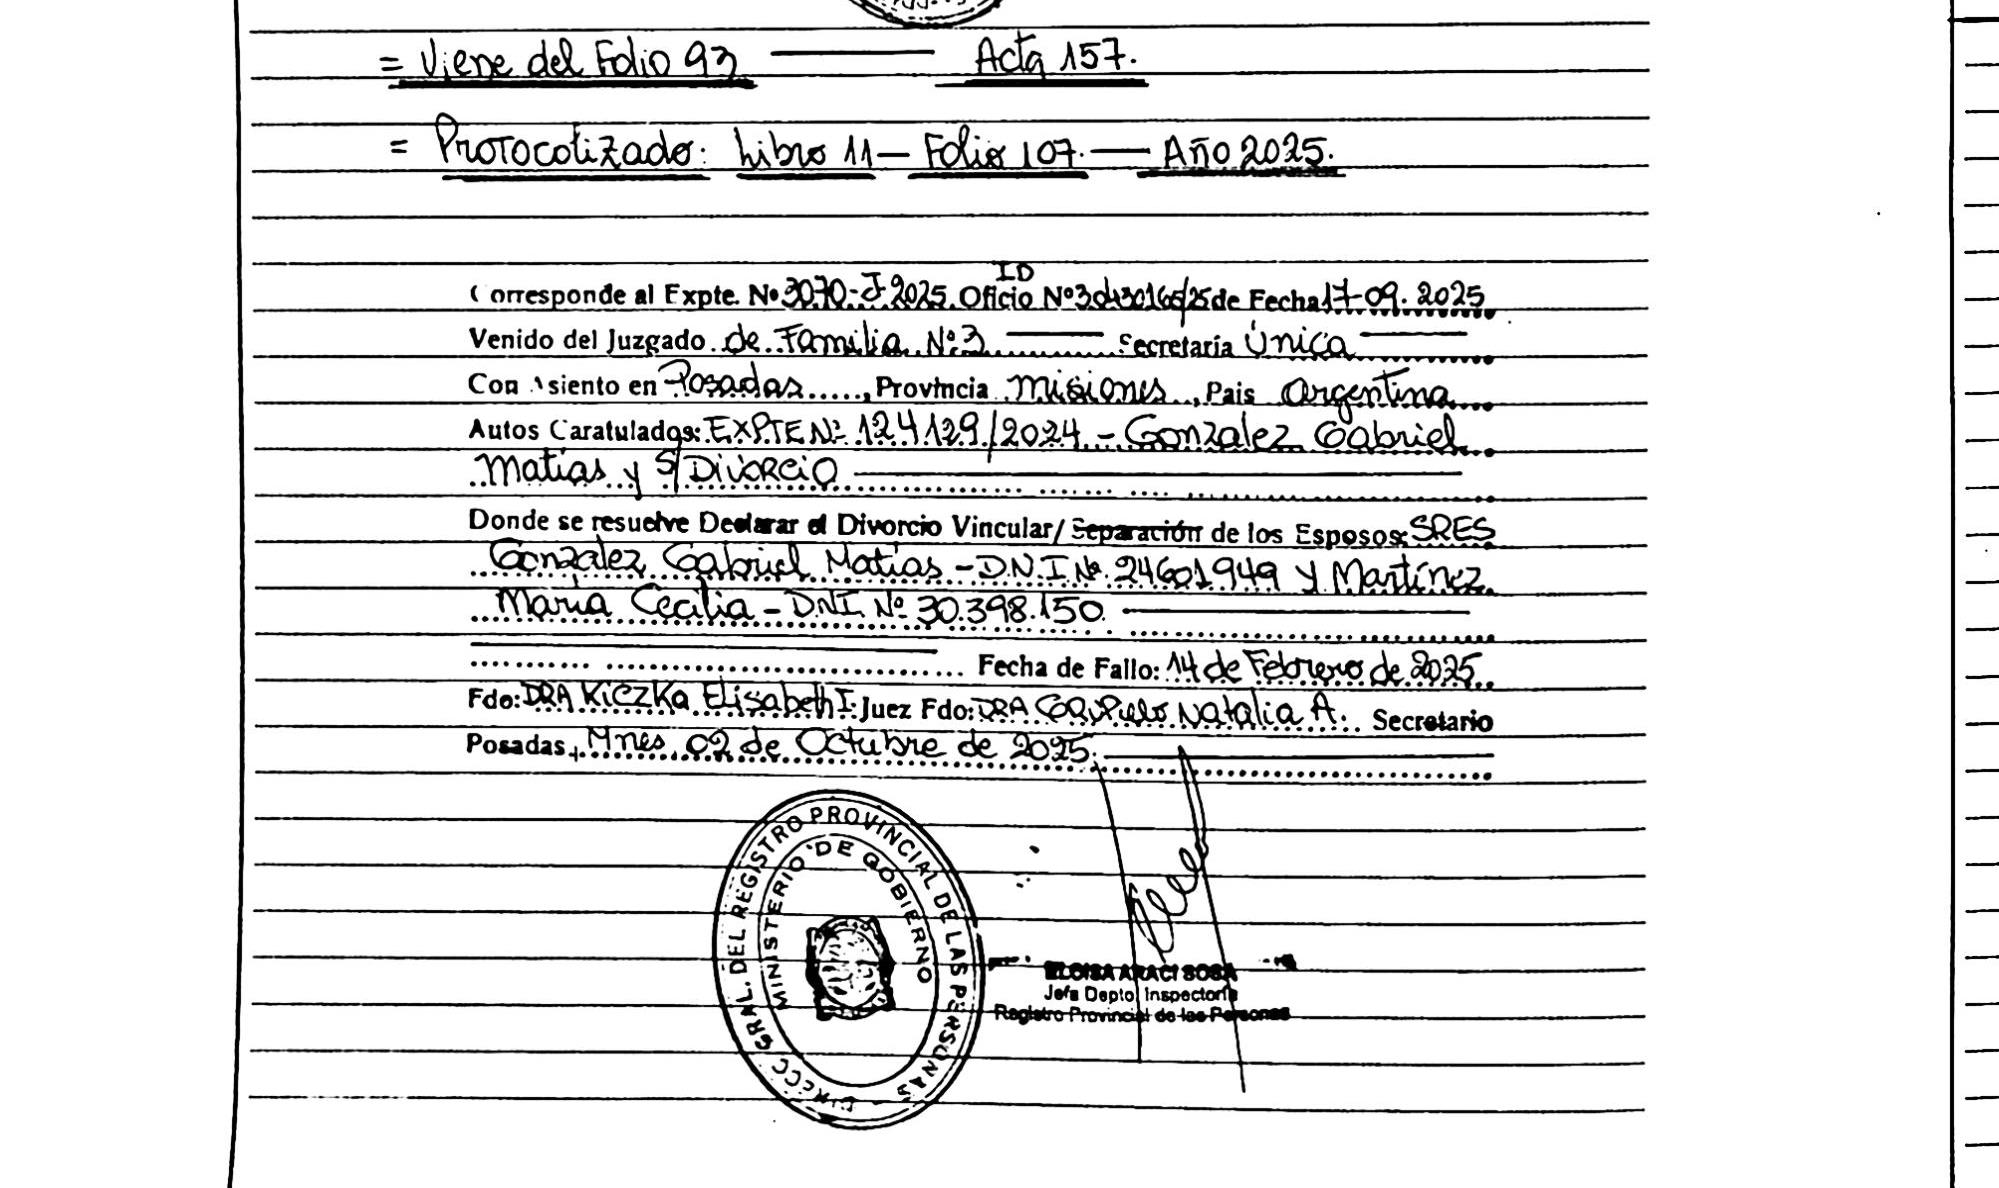 = Viene del Folio 93 —— Acta 157.
= Protocolizado: Libro 11 — Folio 107. — Año 2025.
Corresponde al Expte. Nº 3070-J-2025. Oficio Nº ID de Fecha 17-09-2025
Venido del Juzgado de Familia Nº 3 —— Secretaría Única ——
Con Asiento en Posadas, Provincia Misiones, País Argentina
Autos Caratulados: EXPTE Nº 124129/2024 - Gonzalez Gabriel
Matías y S/ Divorcio ——
Donde se resuelve Declarar el Divorcio Vincular/ Separación de los Esposos: SRES
Gonzalez Gabriel Matías - D.N.I Nº 24601949 y Martínez
María Cecilia - DNI. Nº 30.398.150. ——
Fecha de Fallo: 14 de Febrero de 2025
Fdo: DRA Kiczka Elisabeth I. Juez Fdo: DRA Natalia A. Secretario
Posadas, Mnes, 02 de Octubre de 2025. ——
DIRECC GRAL. DEL REGISTRO PROVINCIAL DE LAS PERSONAS
MINISTERIO DE GOBIERNO
ELOISA ARACI SOSA
Jefa Depto. Inspectoría
Registro Provincial de las Personas